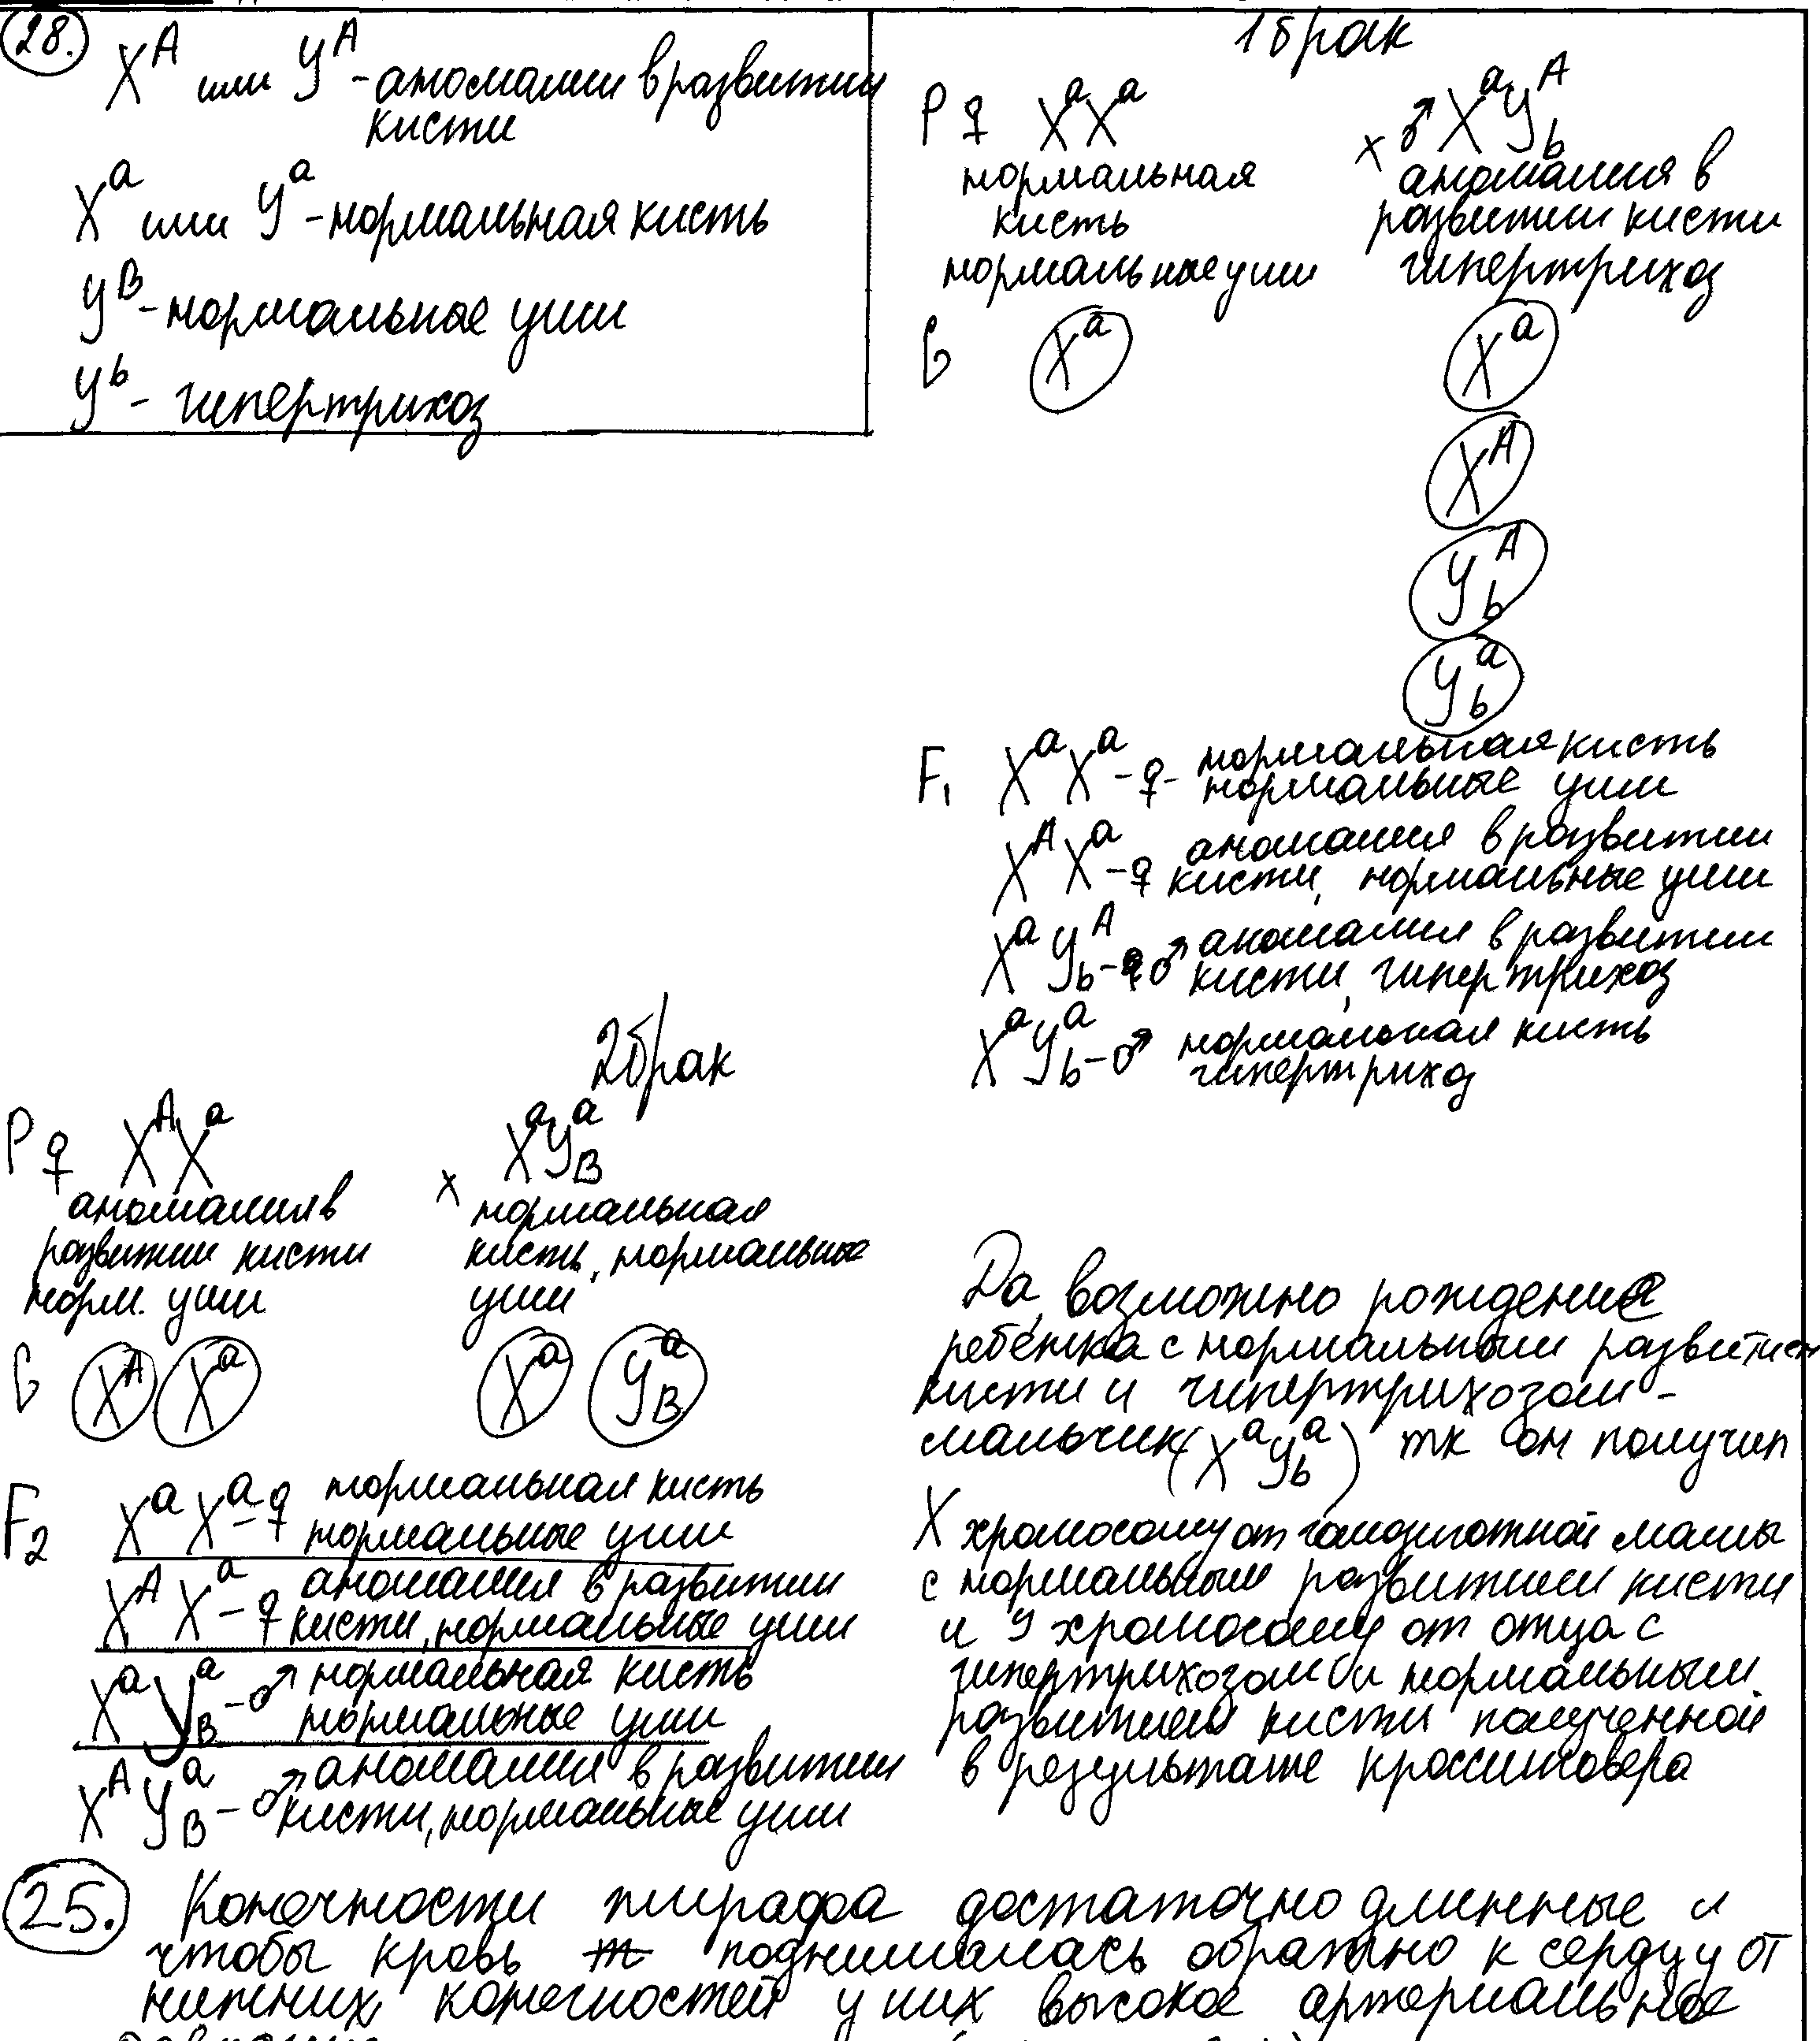 28.
X^A или У^A - аномалии в развитии
кисти
X^a или У^a - нормальная кисть
У^B - нормальные уши
У^b - гипертрихоз
1 брак
P ♀ X^a X^a x ♂ X^a У^A_b
нормальная кисть нормальные уши
аномалия в развитии кисти гипертрихоз
G X^a X^a
X^A
У^A_b
У^a_b
F1 X^a X^a - ♀ - нормальная кисть
нормальные уши
X^A X^a - ♀ аномалия в развитии
кисти, нормальные уши
X^a У^A_b - ♂ аномалия в развитии
кисти, гипертрихоз
X^a У^a_b - ♂ нормальная кисть
гипертрихоз
2 брак
P ♀ X^A X^a x X^a У^a_B
аномалия в развитии кисти норм. уши
нормальная кисть, нормальные уши
G X^A X^a X^a У^a_B
F2 X^a X^a - ♀ нормальная кисть
нормальные уши
X^A X^a - ♀ аномалия в развитии
кисти, нормальные уши
X^a У^a_B - ♂ нормальная кисть
нормальные уши
X^A У^a_B - ♂ аномалии в развитии
кисти, нормальные уши
Да, возможно рождение
ребёнка с нормальным развитием
кисти и гипертрихозом -
мальчик (X^a У^a_b) тк он получил
X хромосому от гомозиготной мамы
с нормальным развитием кисти
и У хромосому от отца с
гипертрихозом и нормальным
развитием кисти полученной
в результате кроссинговера
25. Конечности жирафа достаточно длинные и
чтобы кровь поднималась обратно к сердцу от
нижних конечностей у них высокое артериальное